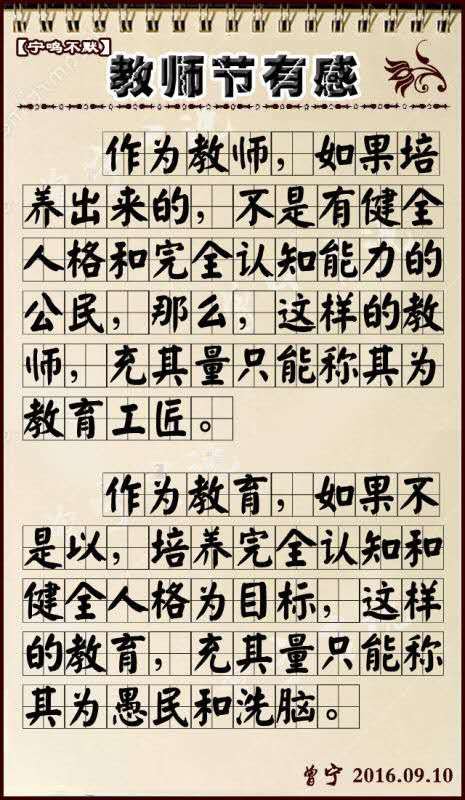 【宁鸣不默】
教师节有感
作为教师，如果培
养出来的，不是有健全
人格和完全认知能力的
公民，那么，这样的教
师，充其量只能称其为
教育工匠。
作为教育，如果不
是以，培养完全认知和
健全人格为目标，这样
的教育，充其量只能称
其为愚民和洗脑。
曾宁 2016.09.10